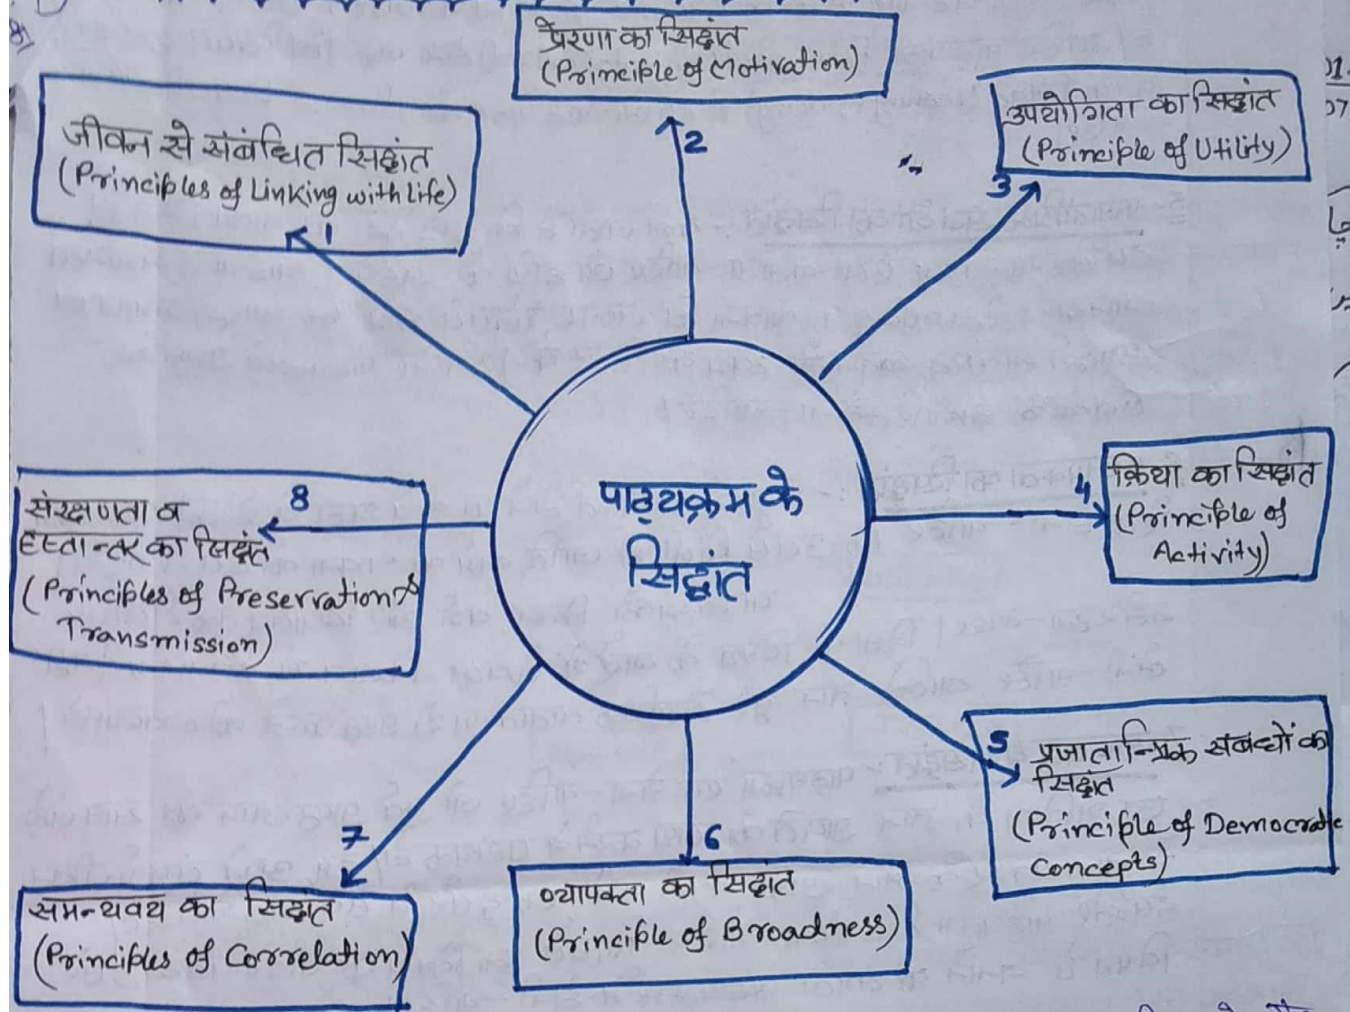 पाठ्यक्रम के
सिद्धांत
1
जीवन से संबंधित सिद्धांत
(Principles of Linking with life)
2
प्रेरणा का सिद्धांत
(Principle of Motivation)
3
उपयोगिता का सिद्धांत
(Principle of Utility)
4
क्रिया का सिद्धांत
(Principle of
Activity)
5
प्रजातान्त्रिक संबन्धों का
सिद्धांत
(Principle of Democratic
Concepts)
6
व्यापकता का सिद्धांत
(Principle of Broadness)
7
समन्यवय का सिद्धांत
(Principles of Correlation)
8
संरक्षणता व
हस्तान्तर का सिद्धांत
(Principles of Preservation &
Transmission)